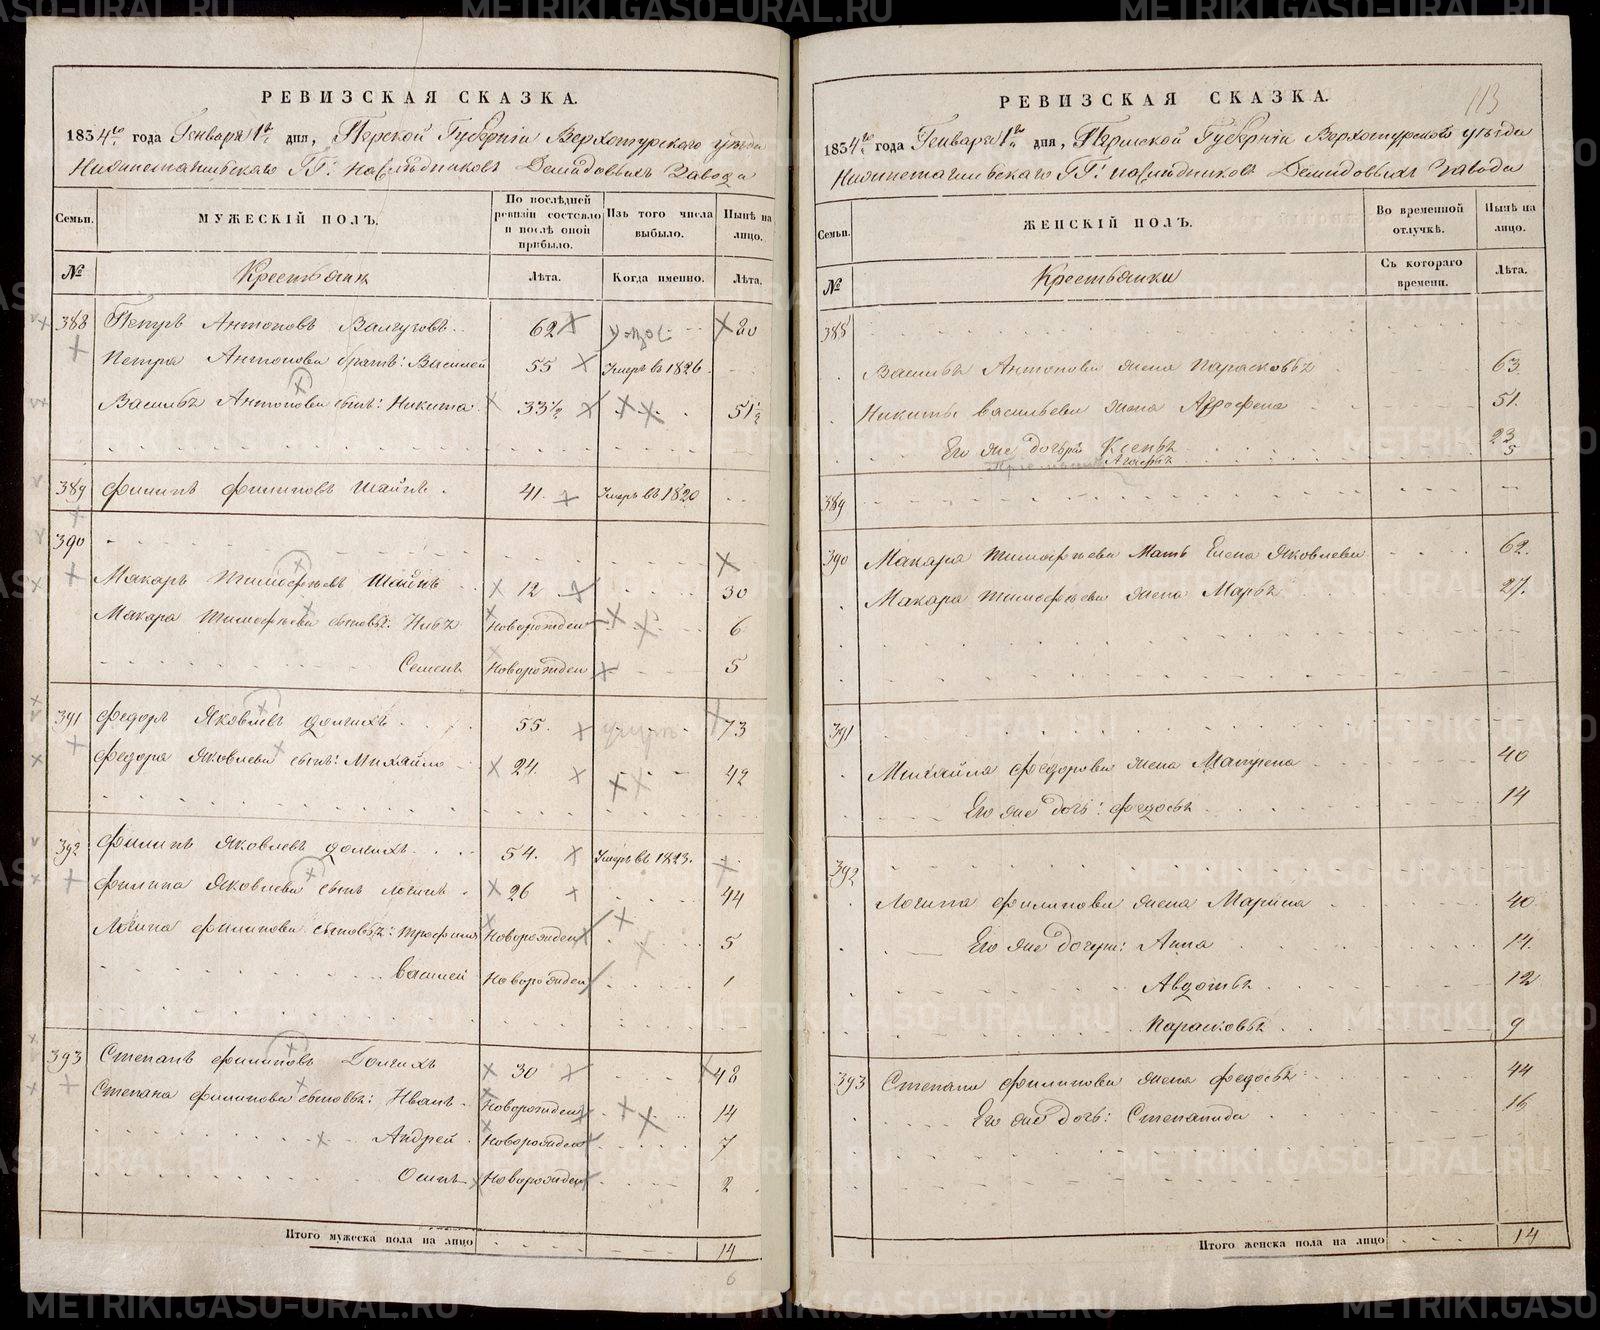 РЕВИЗСКАЯ СКАЗКА.
1834го года Генваря 1го дня, Пермской Губерніи Верхотурскаго уѣзда
Нижнетагильскаго ГГ: наслѣдниковъ Демидовыхъ Завода
Семьи. МУЖЕСКІЙ ПОЛЪ. По послѣдней ревизіи состояло и послѣ оной прибыло. Изъ того числа выбыло. Нынѣ на лицо.
№ Крестьянъ Лѣта. Когда именно. Лѣта.
388 Петръ Антоновъ 62 80
Петра Антонова братъ: Василей 55 Умеръ въ 1826
Василья Антонова сынъ: Никита 33½ 51½
389 Филипъ Филиповъ Шаинъ 41 Умеръ въ 1820
390
Макаръ Тимофѣевъ Шаинъ 12 30
Макара Тимофѣева сыновья: Новорожден 6
Семенъ Новорожден 5
391 Федоръ Яковлевъ Долгихъ 55 73
Федора Яковлева сынъ: Михайло 24 42
392 Филипъ Яковлевъ Долгихъ 54. Умеръ въ 1823.
Филипа Яковлева сынъ Логинъ 26 44
Логина Филипова сыновья: Трофимъ Новорожден 5
Василей Новорожден 1
393 Степанъ Филиповъ Долгихъ 30 48
Степана Филипова сыновья: Иванъ Новорожден 14
Андрей Новорожден 7
Осипъ Новорожден 2
Итого мужеска пола на лицо 14
6
113
РЕВИЗСКАЯ СКАЗКА.
1834го года Генваря 1го дня, Пермской Губерніи Верхотурскаго уѣзда
Нижнетагильскаго ГГ: наслѣдниковъ Демидовыхъ Завода
Семьи. ЖЕНСКІЙ ПОЛЪ. Во временной отлучкѣ. Нынѣ на лицо.
№ Крестьянки Съ котораго времени. Лѣта.
388
Василья Антонова жена Парасковья 63
Никиты Васильева жена Агрофена 51.
Его же дочери Ксенья 23
Агафья 5
389
390 Макара Тимофѣева мать Елена Яковлева 62.
Макара Тимофѣева жена Марья 27.
391
Михайла Федорова жена Матрена 40
Его же дочь: Федосья 14
392
Логина Филипова жена Марина 40
Его же дочери: Анна 14.
Авдотья 12
Парасковья 9
393 Степана Филипова жена Федосья 44
Его же дочь: Степанида 16
Итого женска пола на лицо 14
METRIKI.GASO-URAL.RU